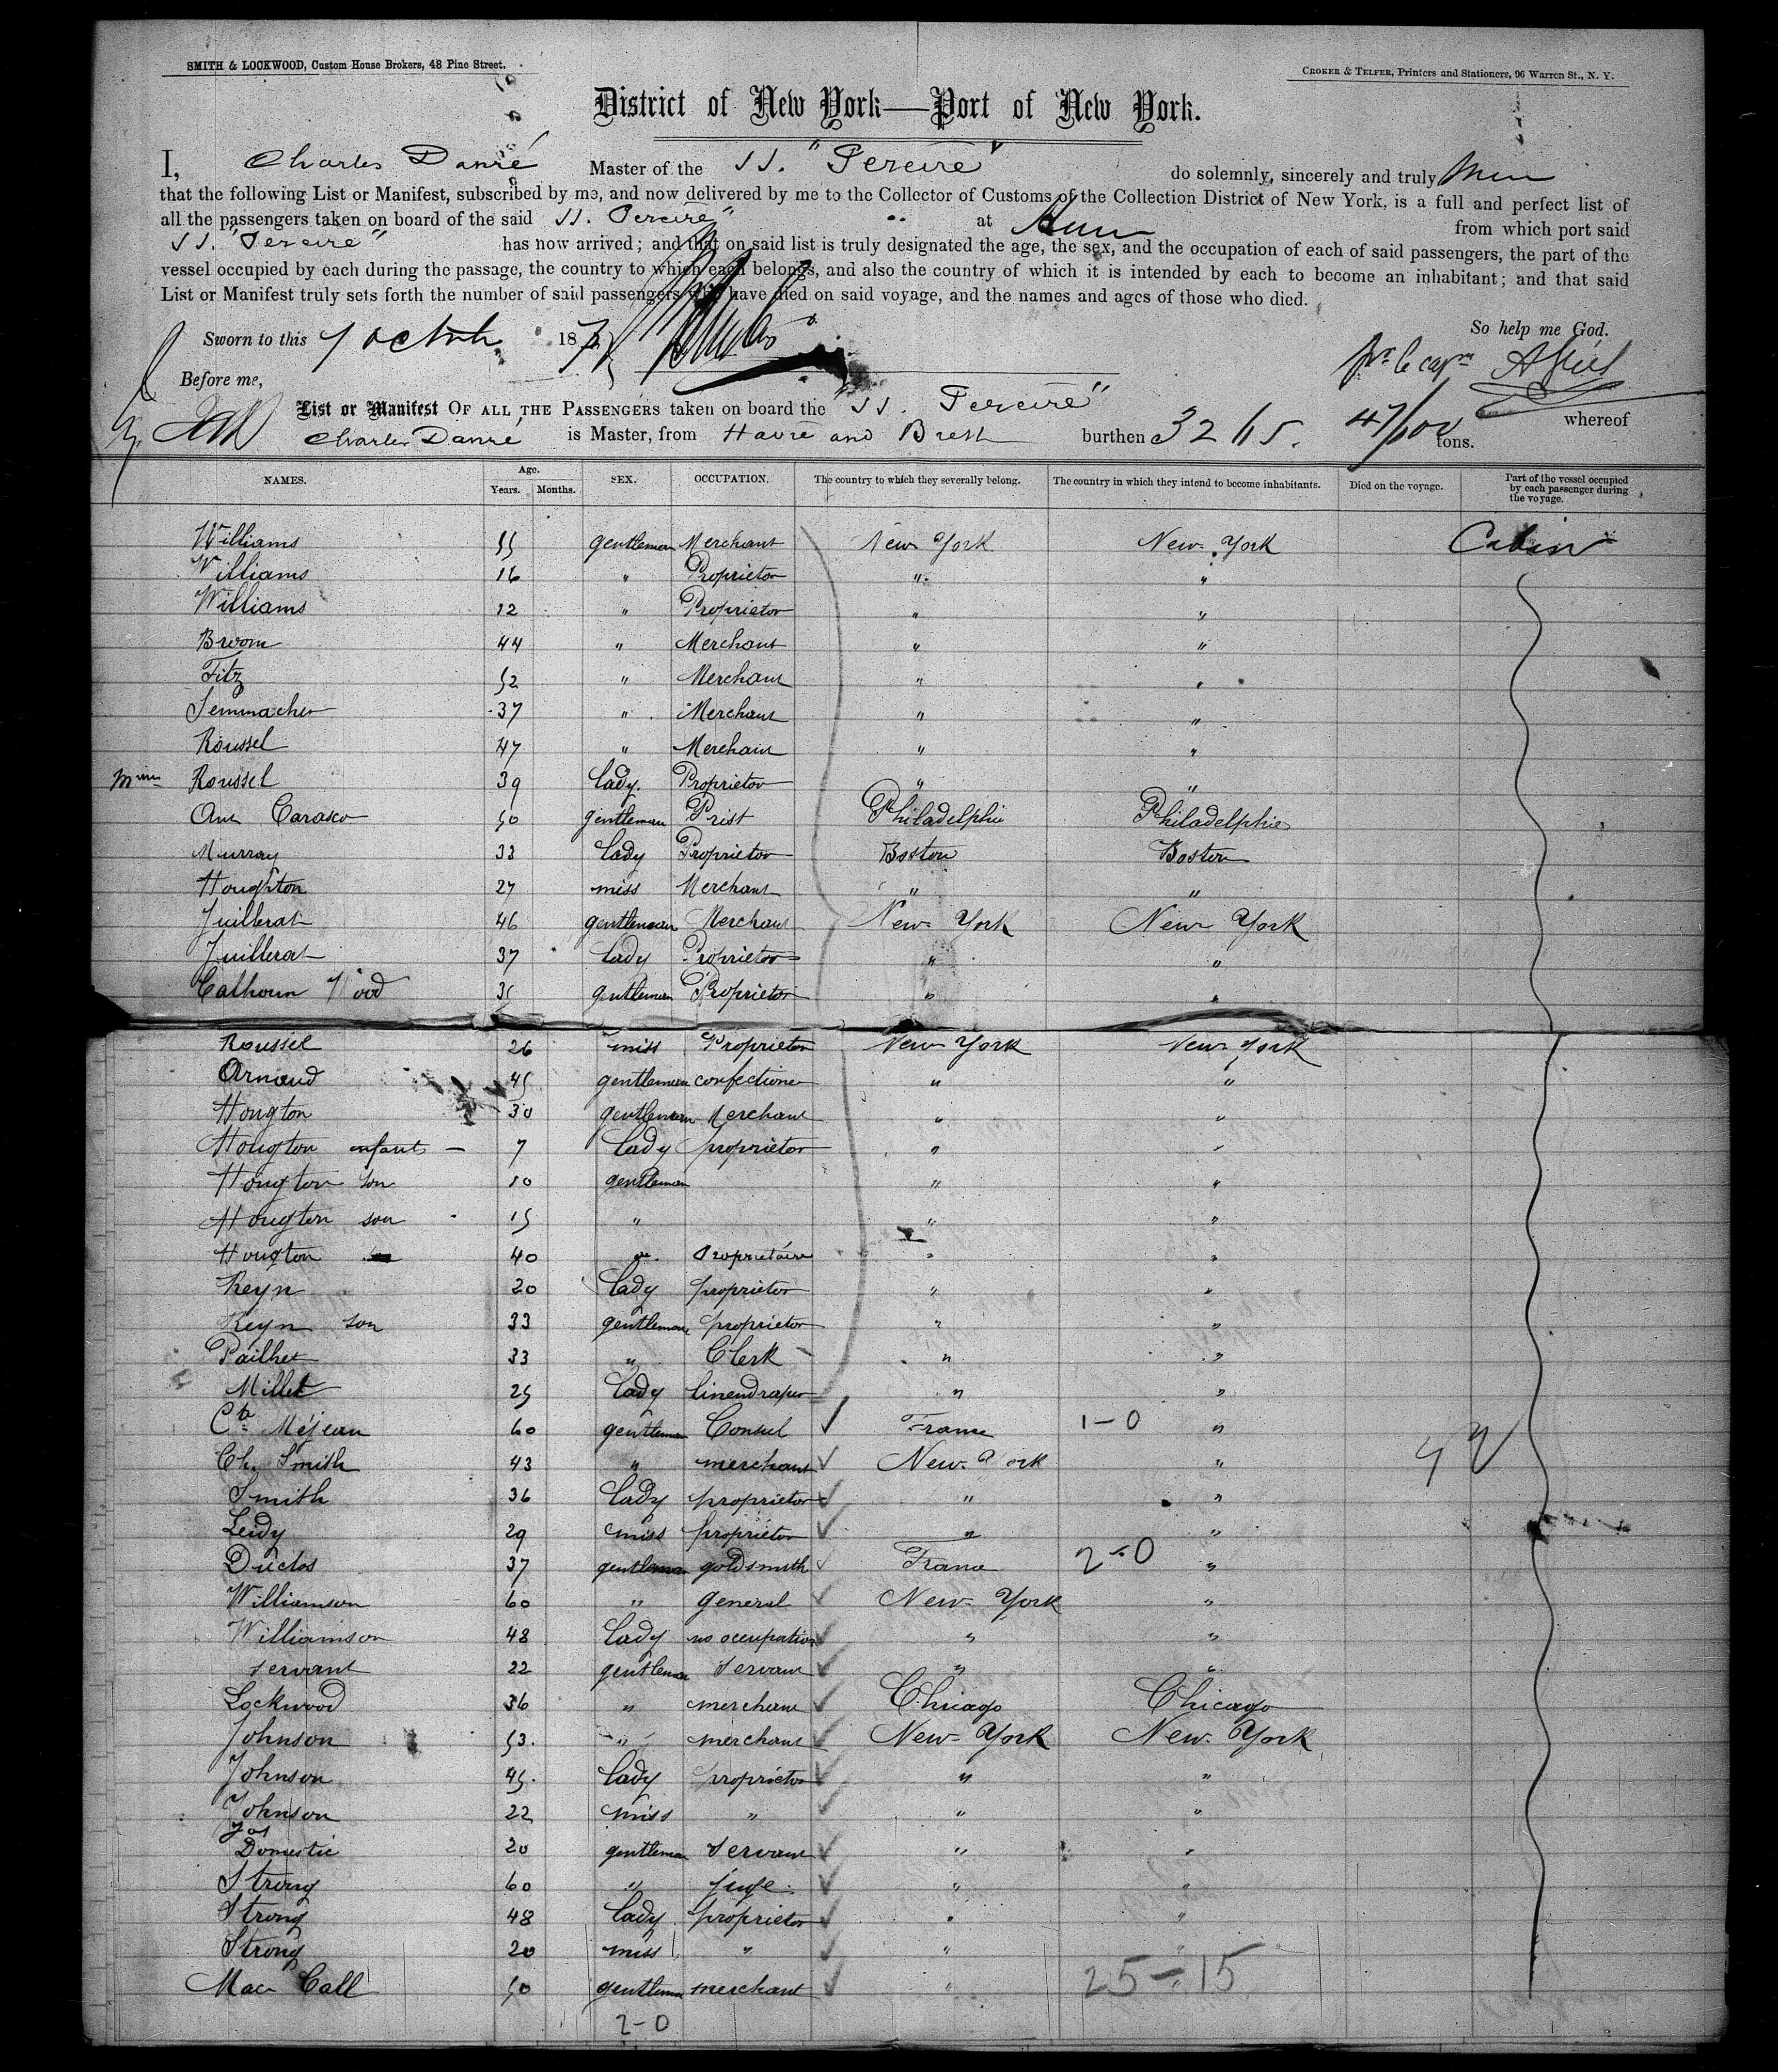 SMITH & LOCKWOOD, Custom House Brokers, 48 Pine Street.
CROKER & TELFER, Printers and Stationers, 96 Warren St., N. Y.
District of New York—Port of New York.
I, Charles Danré Master of the SS. "Pereire" do solemnly, sincerely and truly
that the following List or Manifest, subscribed by me, and now delivered by me to the Collector of Customs of the Collection District of New York, is a full and perfect list of
all the passengers taken on board of the said SS. Pereire" at from which port said
SS. "Pereire" has now arrived; and that on said list is truly designated the age, the sex, and the occupation of each of said passengers, the part of the
vessel occupied by each during the passage, the country to which each belongs, and also the country of which it is intended by each to become an inhabitant; and that said
List or Manifest truly sets forth the number of said passengers who have died on said voyage, and the names and ages of those who died.
So help me God.
Sworn to this 7 187
Before me,
List or Manifest OF ALL THE PASSENGERS taken on board the SS. Pereire" whereof
Charles Danré is Master, from Havre and Brest burthen 3265. 47/100 tons.
NAMES. Age. Years. Months. SEX. OCCUPATION. The country to which they severally belong. The country in which they intend to become inhabitants. Died on the voyage. Part of the vessel occupied by each passenger during the voyage.
Williams 55 gentleman Merchant New York New York Cabin
Williams 16 " Proprietor " "
Williams 12 " Proprietor " "
Broom 44 " Merchant " "
Fitz 52 " Merchant " "
Semmacher 37 " Merchant " "
Roussel 47 " Merchant " "
Roussel 39 Lady Proprietor " "
Carasco 50 gentleman Prist Philadelphie Philadelphie
Murray 33 Lady Proprietor Boston Boston
Houghton 27 miss Merchant " "
Juillerat 46 gentleman Merchant New York New York
Juillerat 37 Lady Proprietor " "
Calhoun Wood 35 gentleman Proprietor " "
Roussel 26 miss Proprietor New York New York
Arnaud 45 gentleman confectioner " "
Hougton 30 gentleman Merchant " "
Hougton enfant — 7 Lady proprietor " "
Hougton son 10 gentleman " "
Hougton son 15 " " "
Hougton 40 Proprietaire " "
Reyn 20 Lady proprietor " "
Reyn son 33 gentleman proprietor " "
Pailhet 33 " Clerk " "
Millet 25 Lady linendraper " "
Cte Méjean 60 gentleman Consul France 1-0 "
Ch. Smith 43 " merchant New York "
Smith 36 Lady proprietor " "
Leidy 29 miss proprietor " "
Duclos 37 gentleman goldsmith France 2-0 "
Williamson 60 " general New York "
Williamson 48 Lady no occupation " "
servant 22 gentleman Servant " "
Lockwood 36 " merchant Chicago Chicago
Johnson 53. " merchant New York New York
Johnson 45. Lady proprietor " "
Johnson 22 miss " " "
Domestic 20 gentleman Servant " "
Strong 60 " juge " "
Strong 48 Lady proprietor " "
Strong 20 miss " " "
Mac Call 50 gentleman merchant " 25-15
2-0